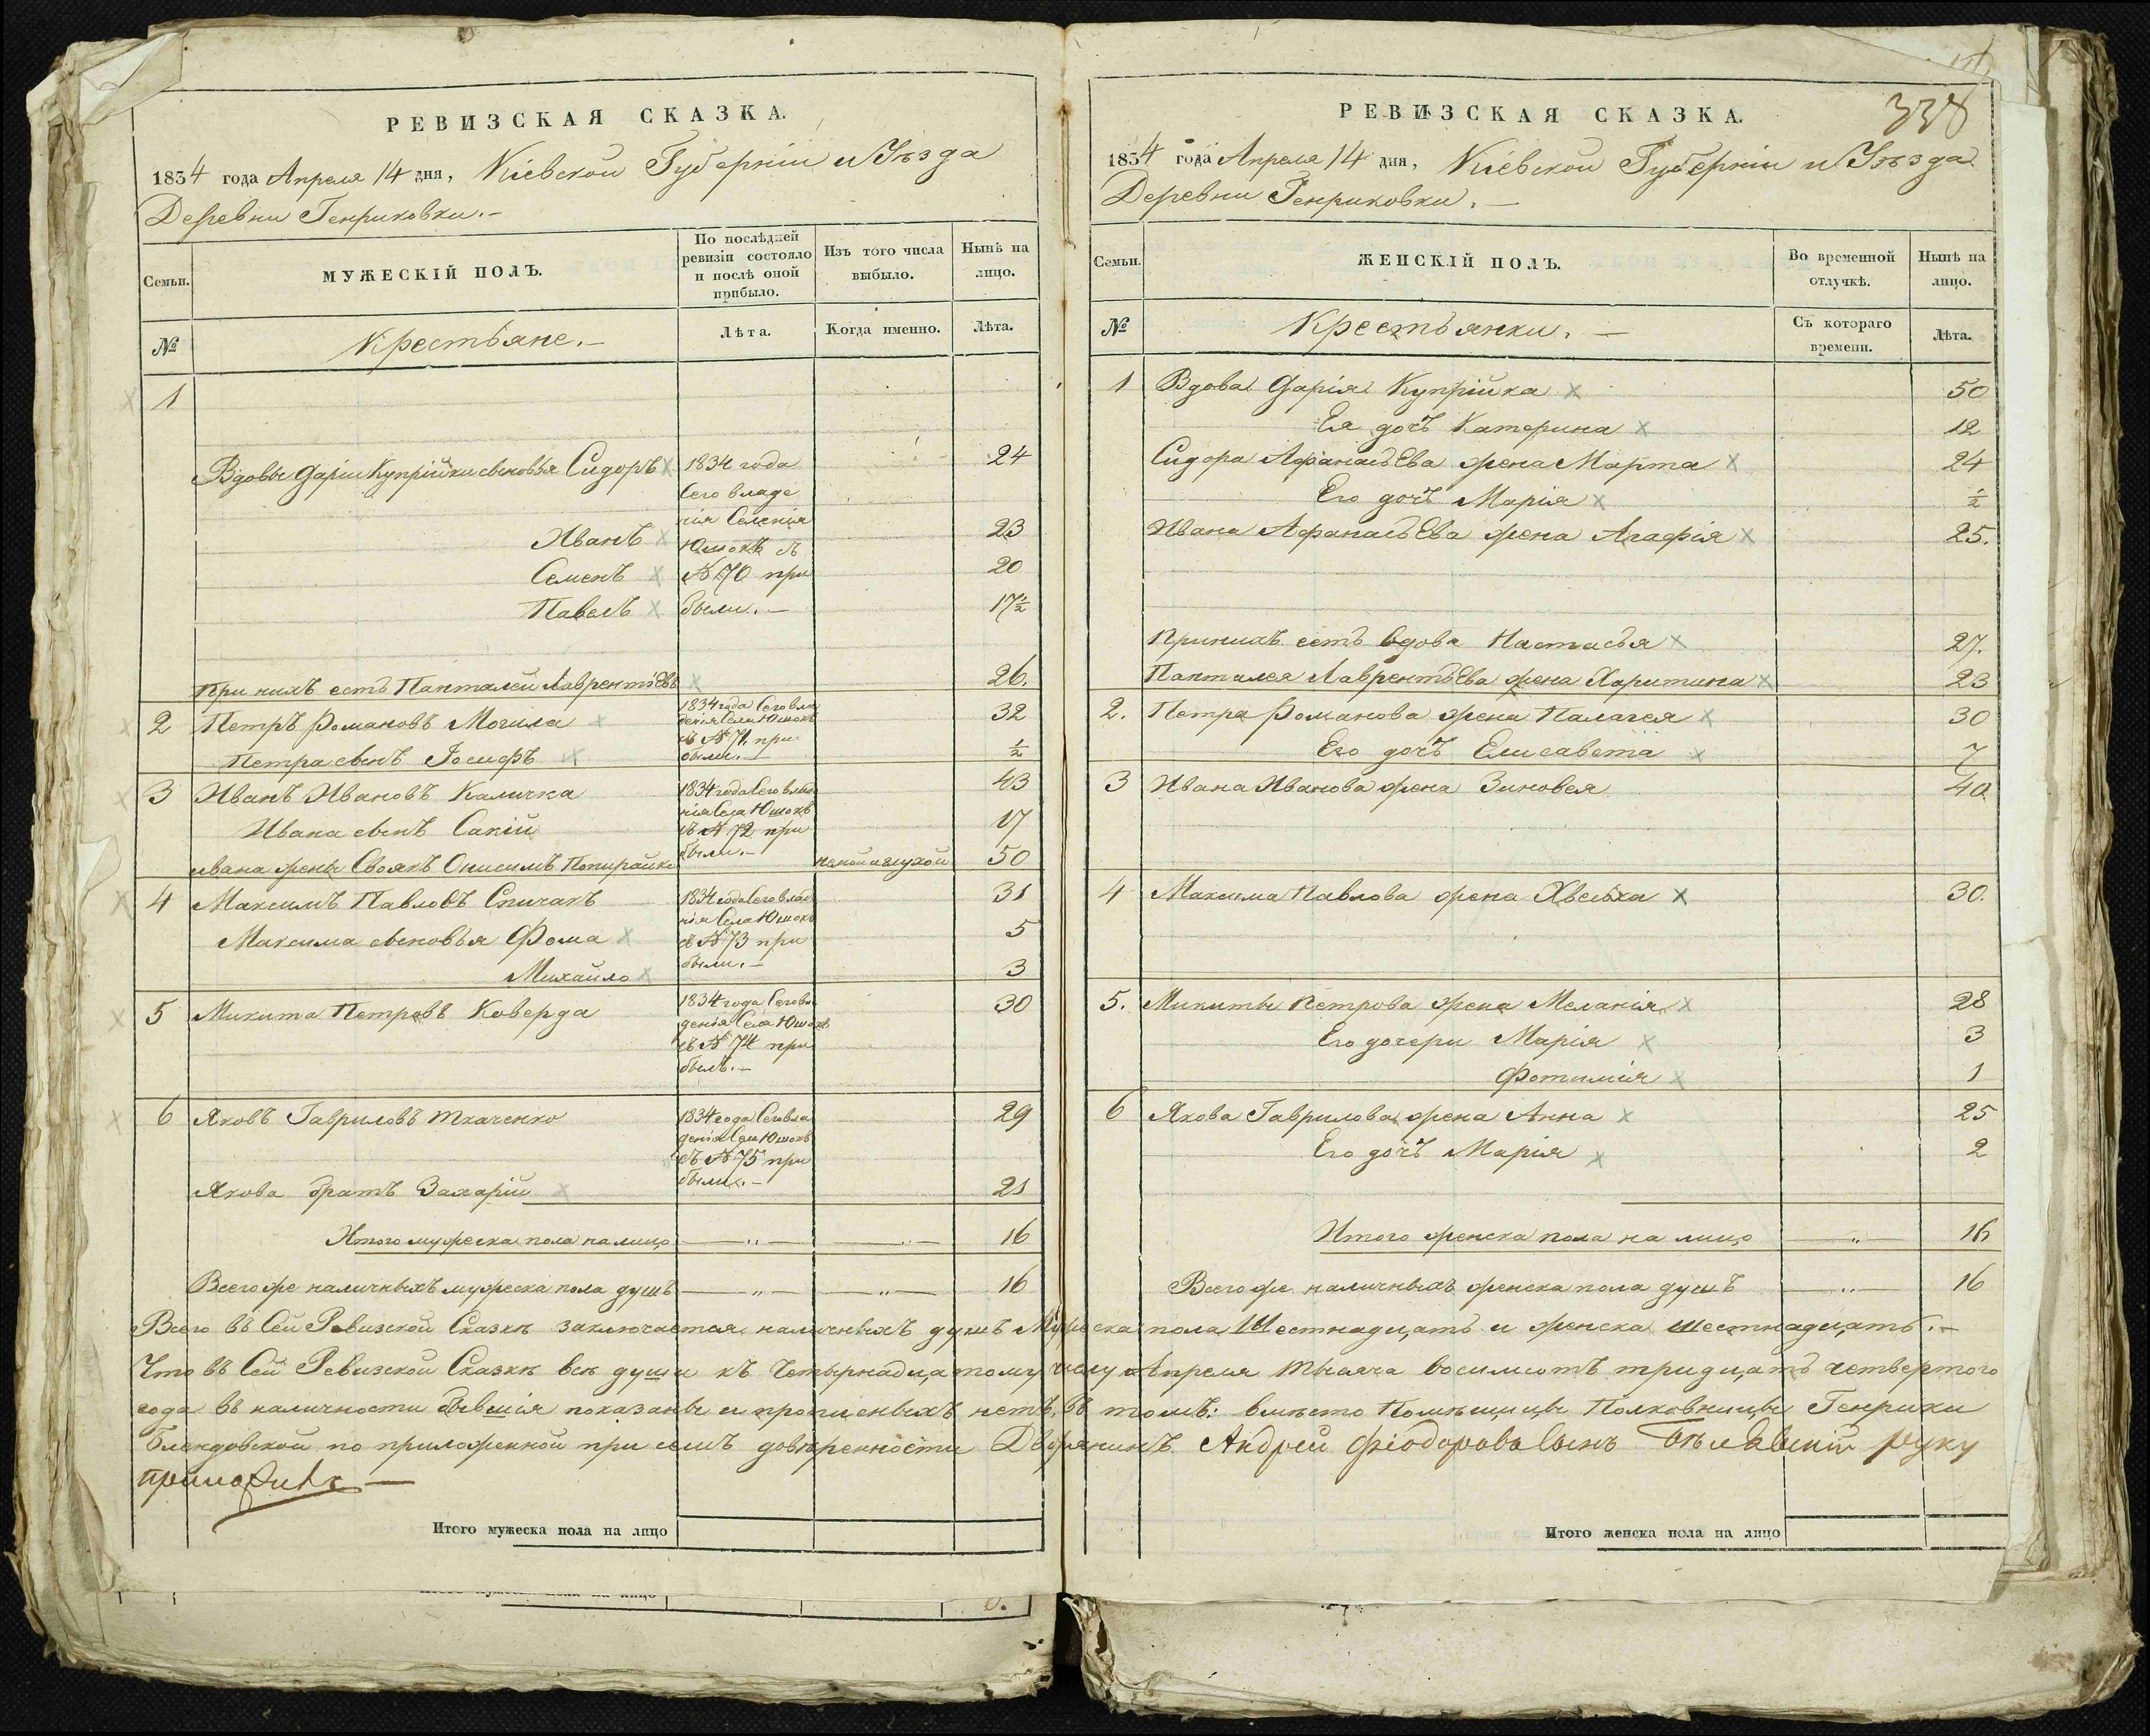 РЕВИЗСКАЯ СКАЗКА.
1834 года Апреля 14 дня, Кіевской Губерніи и Уѣзда
Деревни Генриховки.-
Семьи.
МУЖЕСКІЙ ПОЛЪ.
По послѣдней
ревизіи состояло
и послѣ оной
прибыло.
Изъ того числа
выбыло.
Нынѣ на
лицо.
№
Крестьяне.-
Лѣта.
Когда именно.
Лѣта.
1
Вдовы Даріи Купрійки сыновья Сидоръ 1834 года 24
Сего владе
нія Селенія
Иванъ Юшокъ съ 23
Семенъ №70 при 20
Павелъ были.- 17½
При нихъ есть Панталей Лаврентіевъ 26.
1834 года Сего вла
2 Петръ Романовъ Могила денія Села Юшокъ 32
съ №71. при
Петра сынъ Іосифъ были.- ½
3 Иванъ Ивановъ Каличка 1834 года Сего владе 43
нія Села Юшокъ
Ивана сынъ Сакій съ №72 при 17
были.-
ивана жены Своякъ Онисимъ Попирайко немой и глухой 50
4 Максимъ Павловъ Спичакъ 1834 года Сего владе 31
нія Села Юшокъ
Максима сыновья Фома съ №73 при 5
Михайло были.- 3
5 Микита Петровъ Коверда 1834 года Сего вла 30
денія Села Юшокъ
съ №74 при
былъ.-
6 Яковъ Гавриловъ Ткаченко 1834 года Сего вла 29
денія Села Юшокъ
съ №75 при
Якова братъ Захарій были.- 21
Итого мужеска пола на лицо 16
Всего же наличныхъ мужеска пола душъ 16
РЕВИЗСКАЯ СКАЗКА.
338
1834 года Апреля 14 дня, Кіевской Губерніи и Уѣзда
Деревни Генриховки.-
Семьи.
ЖЕНСКІЙ ПОЛЪ.
Во временной
отлучкѣ.
Нынѣ на
лицо.
№
Крестьянки.-
Съ котораго
времени.
Лѣта.
1 Вдова Дарія Купрійка 50
Ея дочь Катерина 12
Сидора Афанасьева жена Марта 24
Его дочь Марія ½
Ивана Афанасьева жена Агафія 25.
При нихъ есть вдова Настасья 27.
Панталея Лаврентьева жена Харитина 23
2. Петра Романова жена Палагея 30
Его дочь Елисавета 7
3 Ивана Иванова жена Зиновея 40
4 Максима Павлова жена Хвеська 30.
5. Микиты Петрова жена Меланія 28
Его дочери Марія 3
Фотимія 1
6 Якова Гаврилова жена Анна 25
Его дочь Марія 2
Итого женска пола на лицо 16
Всего же наличныхъ женска пола душъ 16
Всего въ Сей Ревизской Сказкѣ заключается наличныхъ душъ Мужеска пола Шестнадцать и женска шестнадцать.-
Что въ Сей Ревизской Сказкѣ всѣ души къ Четырнадцатому числу Апреля тысяча восимсотъ тридцать четвертого
года въ наличности бывшія показаны и прописныхъ нетъ, въ томъ: вмѣсто Помѣщицы Полковницы Генрики
Блендовской по приложенной при семъ довѣренности Дворянинъ Андрей Фіодоровъ Сынъ руку
приложилъ
Итого мужеска пола на лицо
Итого женска пола на лицо